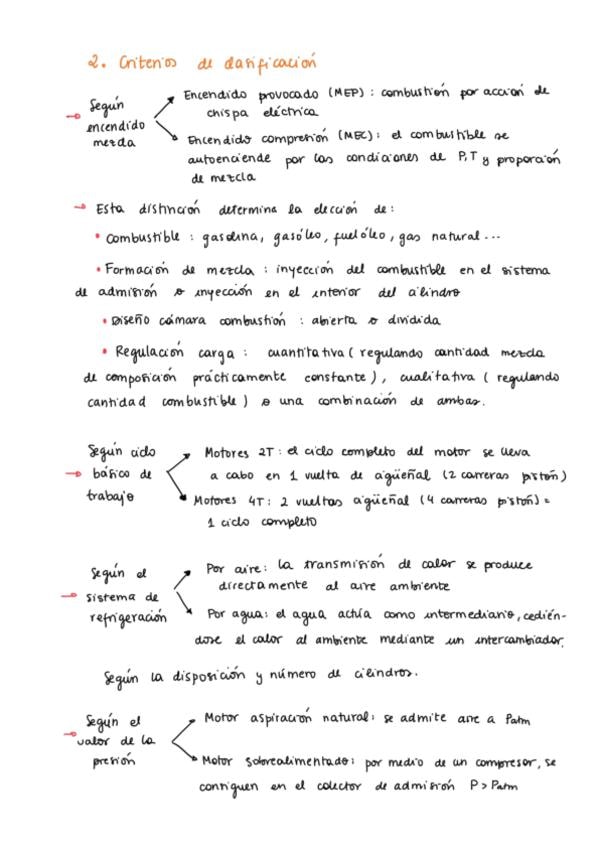 2. Criterios de clasificación
→ Según encendido mezcla
Encendido provocado (MEP): combustión por acción de
chispa eléctrica
Encendido compresión (MEC): el combustible se
autoenciende por las condiciones de P,T y proporción
de mezcla
→ Esta distinción determina la elección de:
• Combustible: gasolina, gasóleo, fuelóleo, gas natural...
• Formación de mezcla: inyección del combustible en el sistema
de admisión o inyección en el interior del cilindro
• Diseño cámara combustión: abierta o dividida
• Regulación carga: cuantitativa (regulando cantidad mezcla
de composición prácticamente constante), cualitativa (regulando
cantidad combustible) o una combinación de ambas.
→ Según ciclo básico de trabajo
Motores 2T: el ciclo completo del motor se lleva
a cabo en 1 vuelta de cigüeñal (2 carreras pistón)
Motores 4T: 2 vueltas cigüeñal (4 carreras pistón) =
1 ciclo completo
→ Según el sistema de refrigeración
Por aire: la transmisión de calor se produce
directamente al aire ambiente
Por agua: el agua actúa como intermediario, cedién-
dose el calor al ambiente mediante un intercambiador.
Según la disposición y número de cilindros.
→ Según el valor de la presión
Motor aspiración natural: se admite aire a Patm
Motor sobrealimentado: por medio de un compresor, se
consiguen en el colector de admisión P > Patm